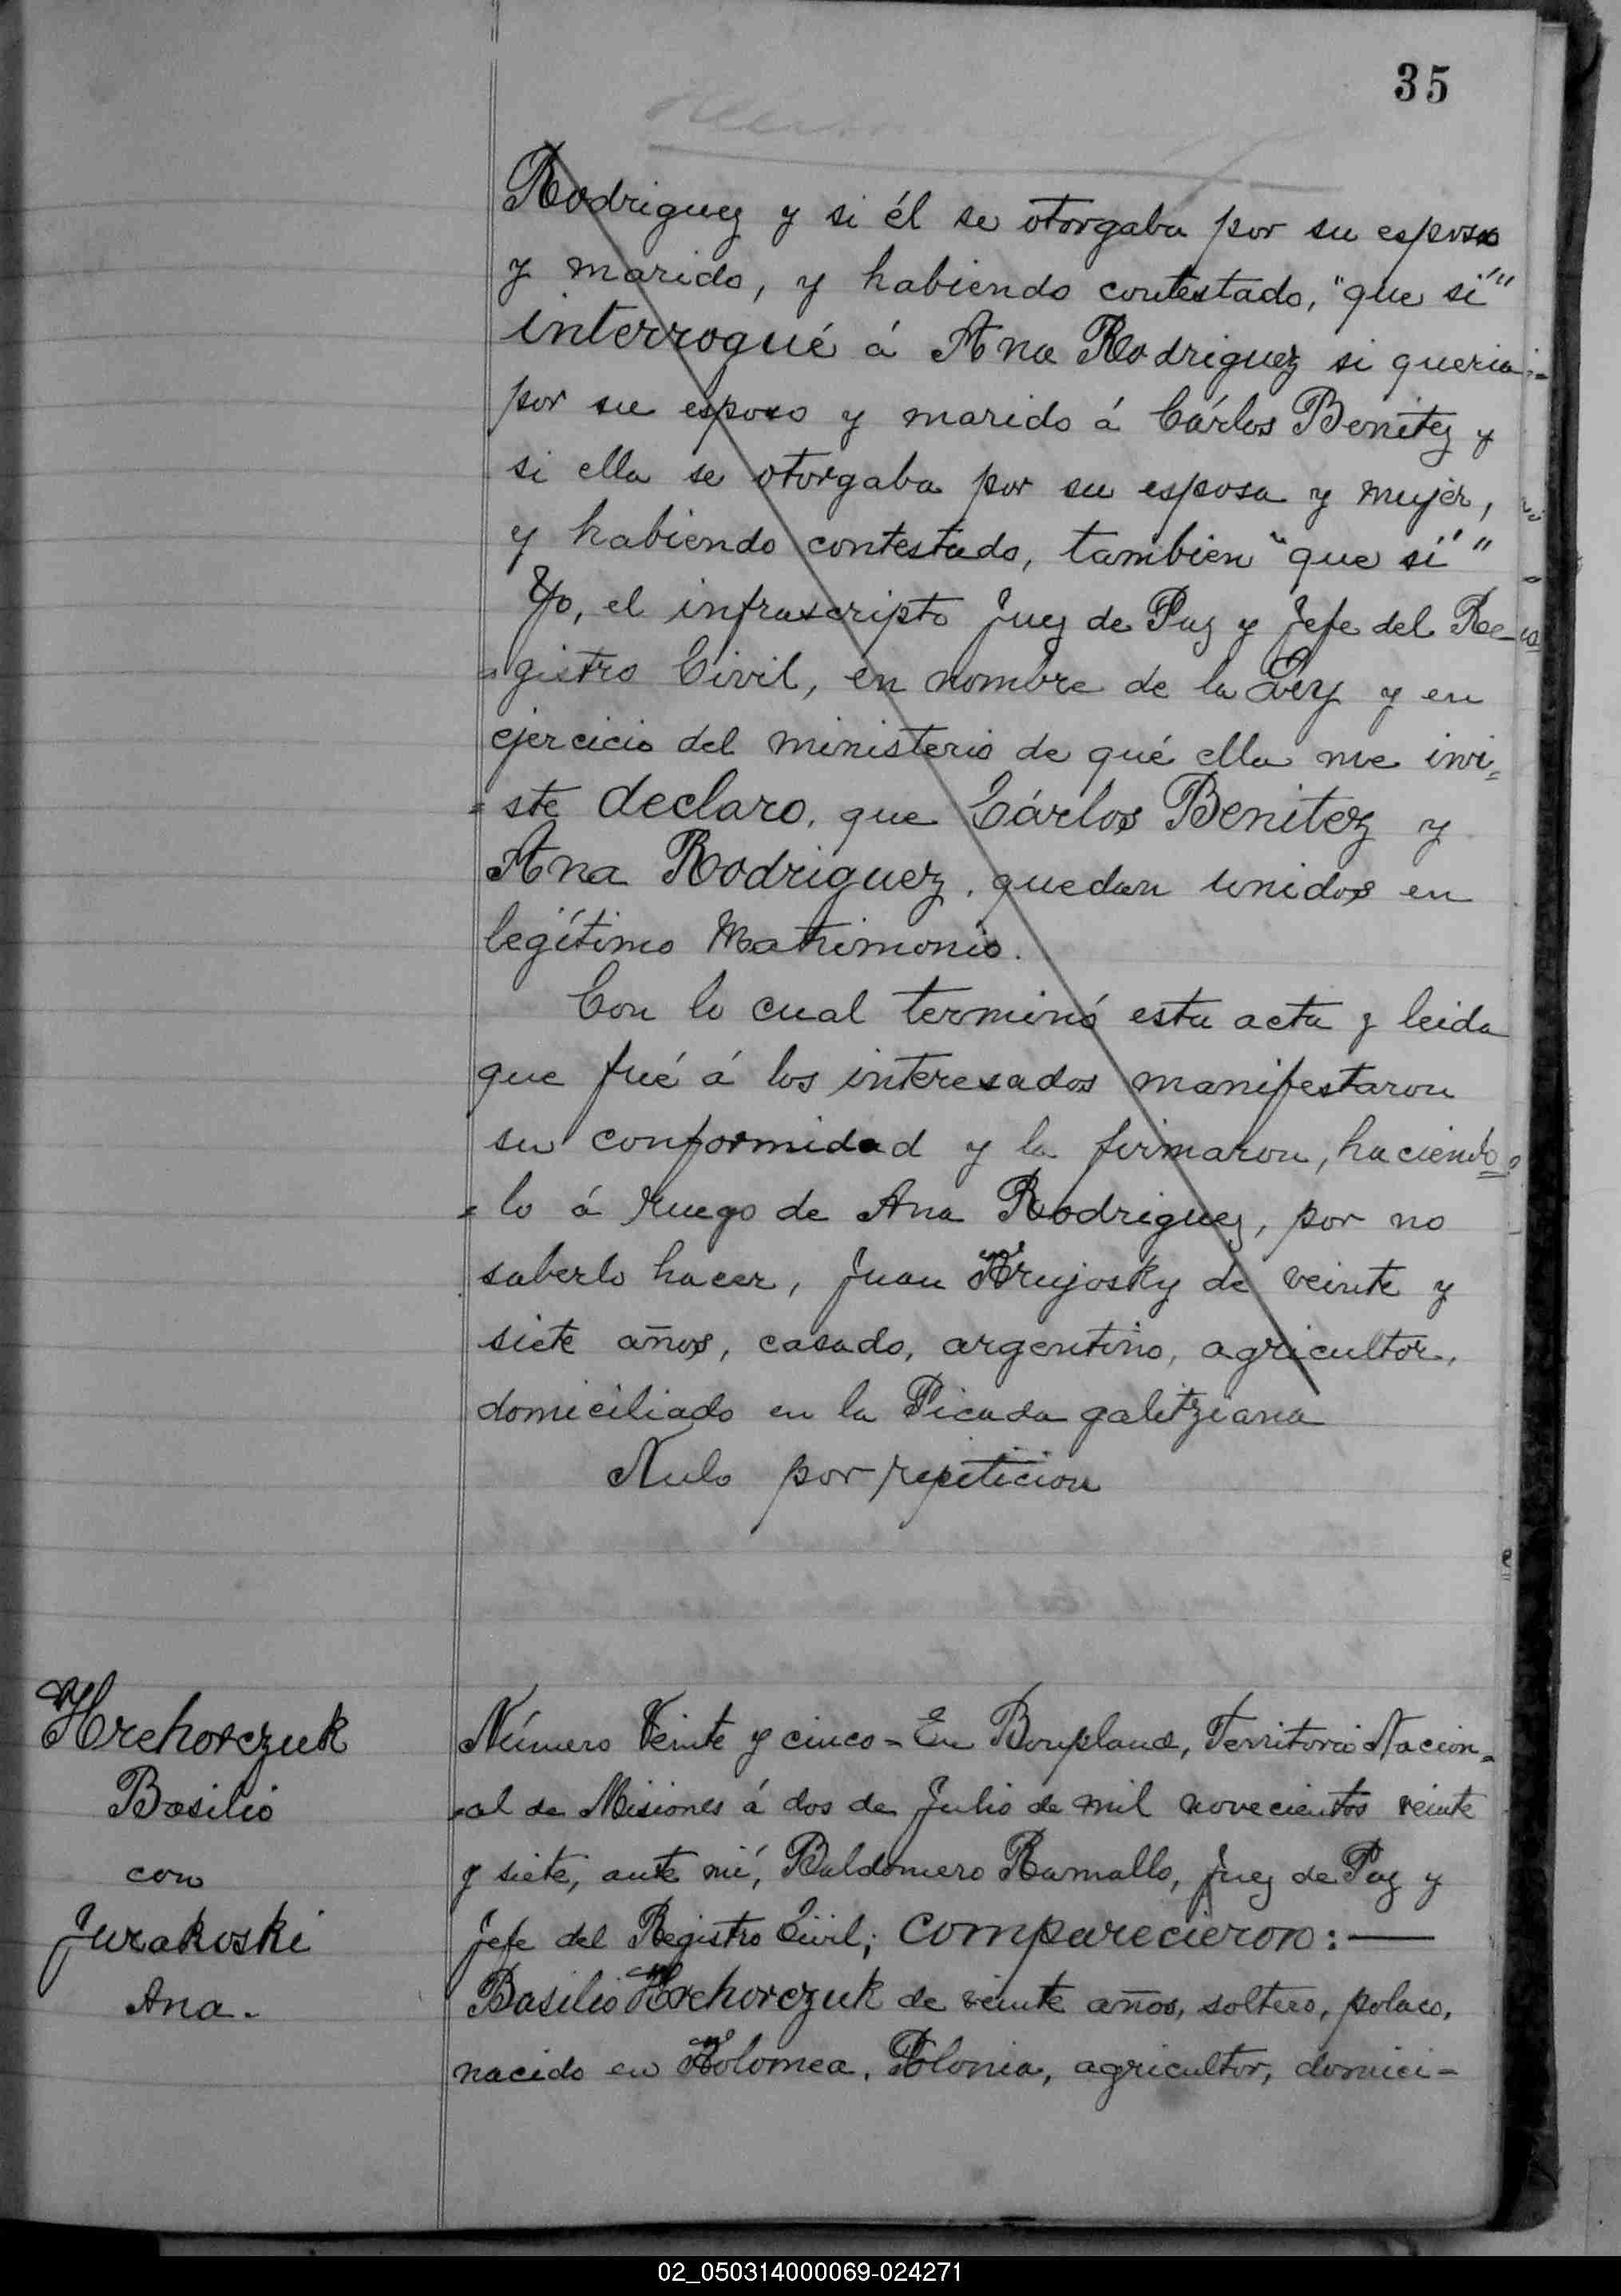 35
Rodriguez y si él se otorgaba por su esposo
y marido, y habiendo contestado, "que sí"
interrogué á Ana Rodriguez si queria
por su esposo y marido á Cárlos Benitez y
si ella se otorgaba por su esposa y mujer,
y habiendo contestado, tambien "que sí"
Yo, el infrascripto Juez de Paz y Jefe del Re-
=gistro Civil, en nombre de la Ley y en
ejercicio del ministerio de qué ella me invi=
=ste declaro, que Cárlos Benitez y
Ana Rodriguez, quedan unidos en
legítimo Matrimonio.
Con lo cual terminó esta acta y leida
que fué á los interesados manifestaron
su conformidad y la firmaron, haciendo=
=lo á ruego de Ana Rodriguez, por no
saberlo hacer, Juan Krujosky de veinte y
siete años, casado, argentino, agricultor,
domiciliado en la Picada galitziana
Nulo por repeticion
Hrehorczuk
Basilio
con
Jurakoski
Ana.-
Número Veinte y cinco - En Bonpland, Territorio Nacion=
=al de Misiones á dos de Julio de mil novecientos veinte
y siete, ante mí, Baldomero Ramallo, Juez de Paz y
Jefe del Registro Civil; comparecieron: —
Basilio Hrehorczuk de veinte años, soltero, polaco,
nacido en Kolomea, Polonia, agricultor, domici-
02_050314000069-024271